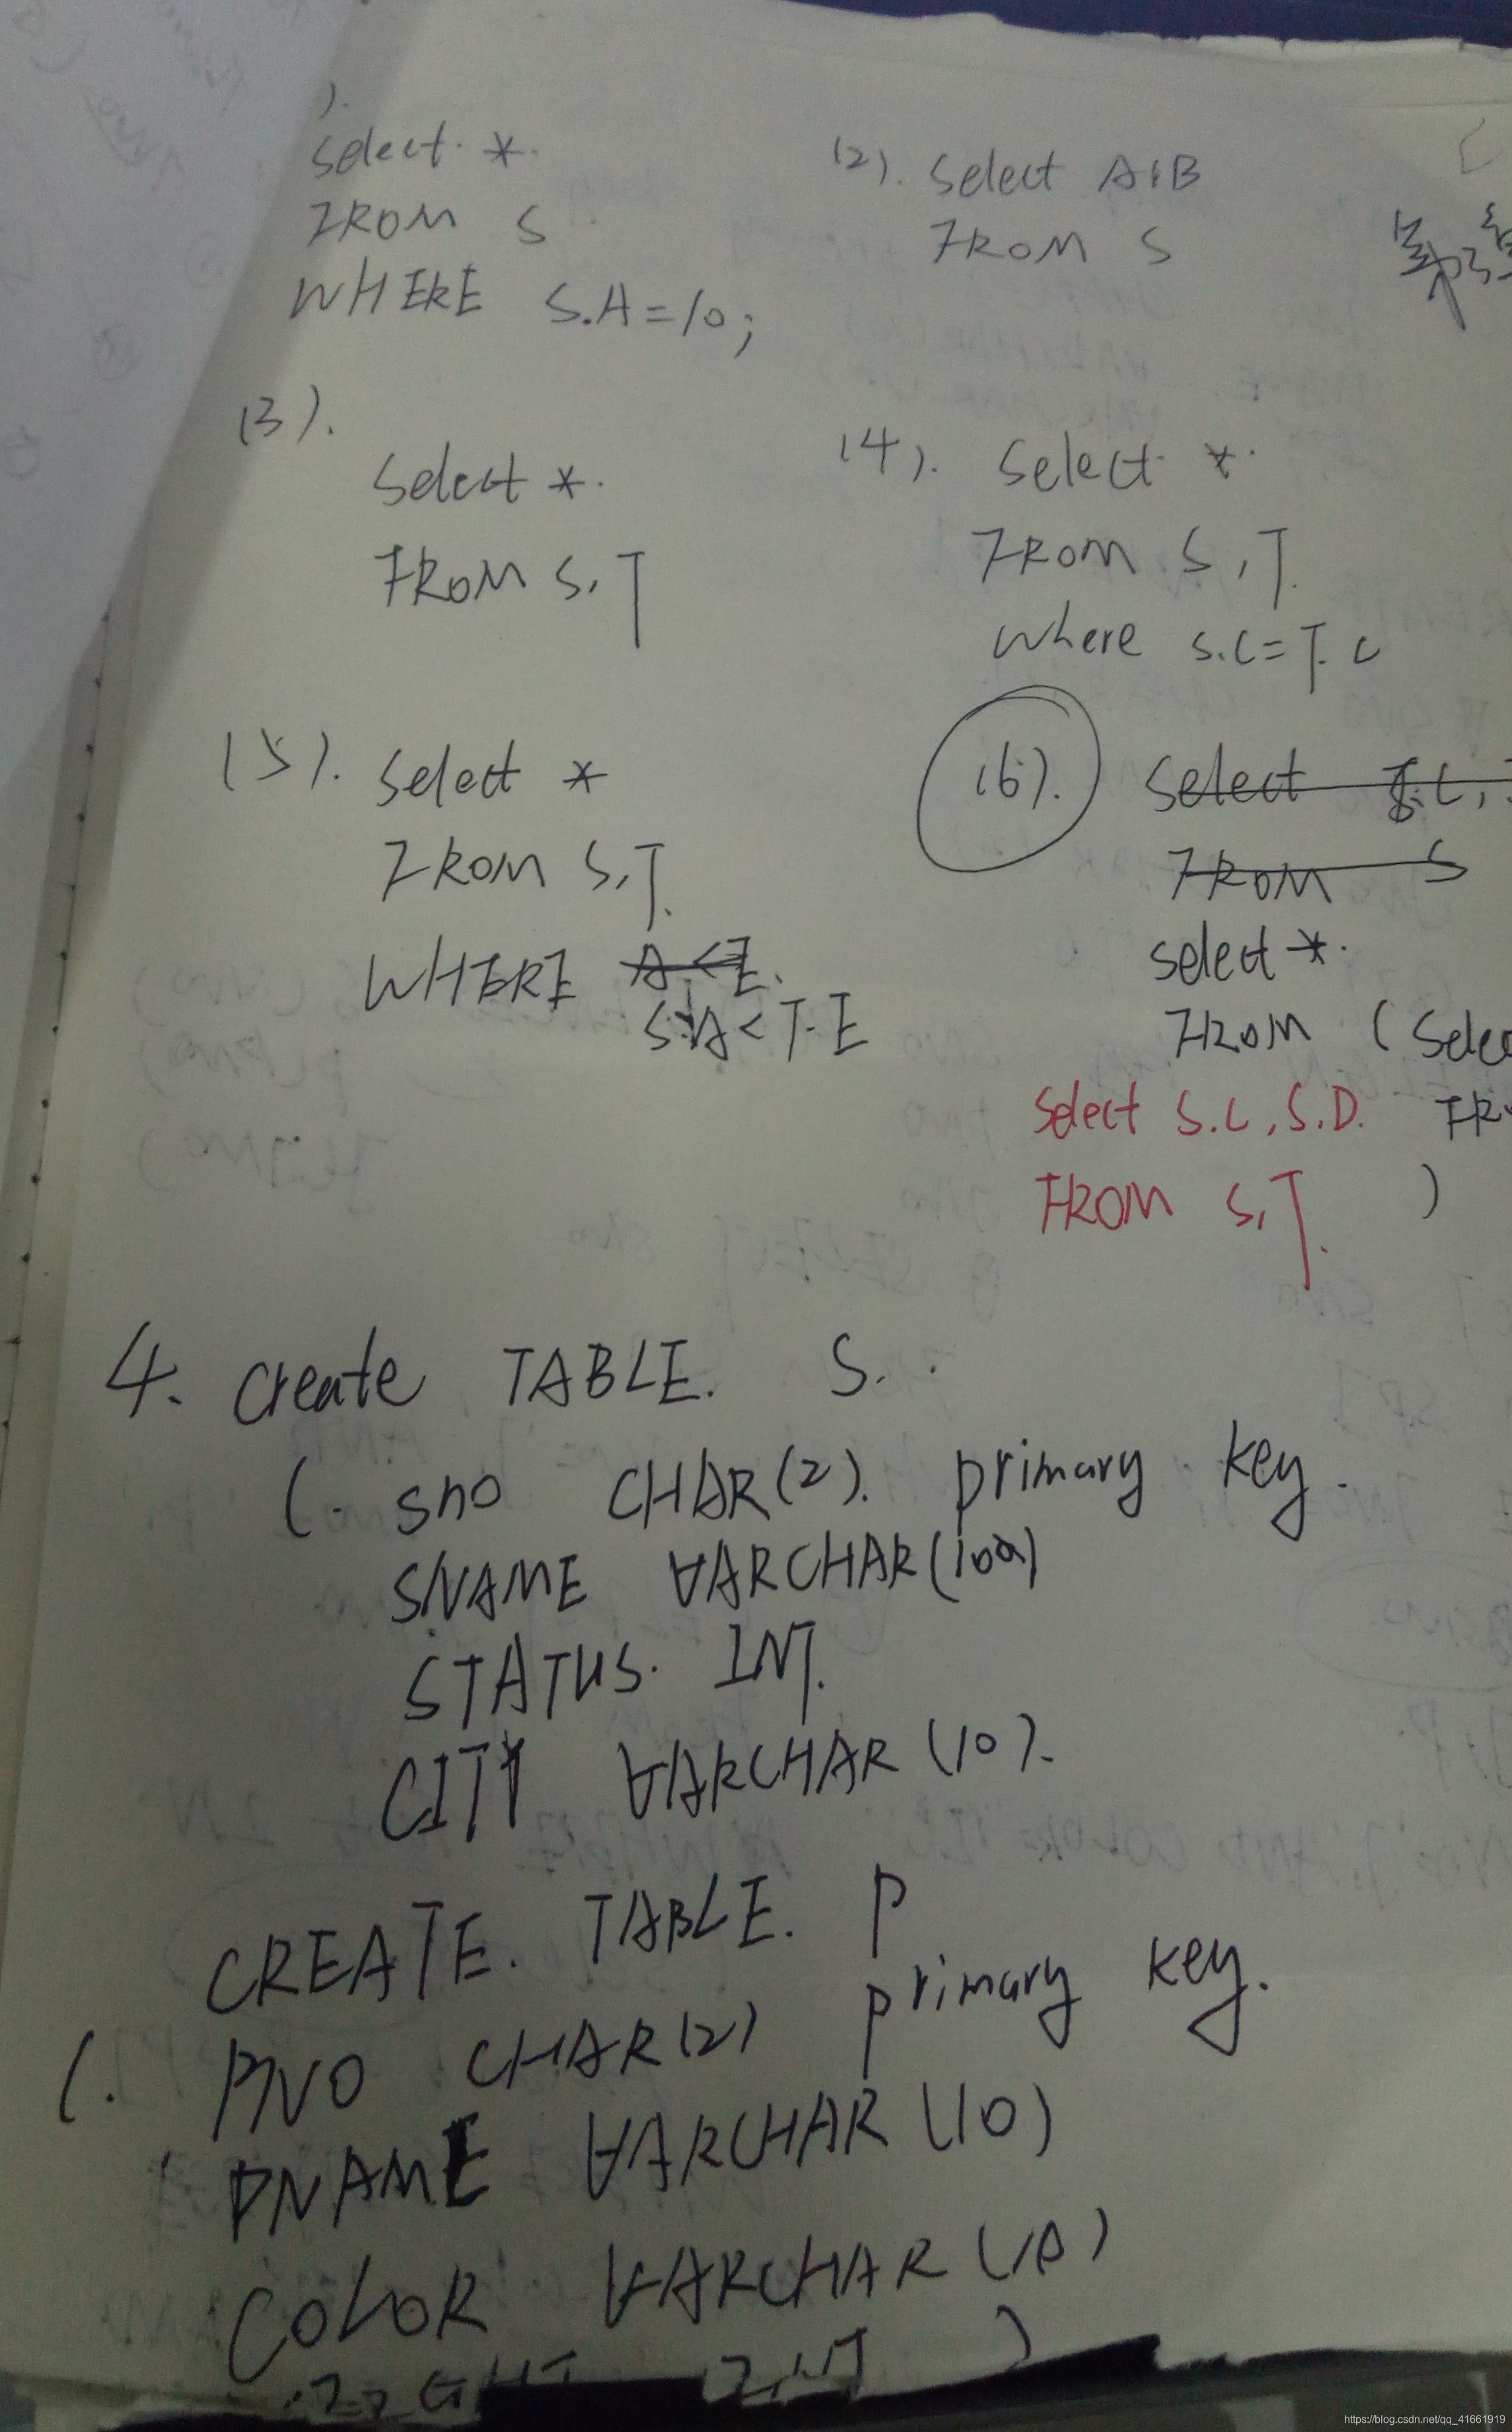 ).
select *
FROM S
WHERE S.A=10;
(2). select A,B
FROM S
第3章
(3).
select *
FROM S,T
(4). select *
FROM S,T.
where S.C=T.C
(5). select *
FROM S,T.
WHERE A<E.
S.A<T.E
(6). select S.C,
FROM S
select *.
FROM (selec
FR
)
select S.C, S.D.
FROM S,T.
4. create TABLE. S.
(. sno CHAR(2). primary key.
SNAME VARCHAR(100)
STATUS. INT.
CITY VARCHAR(10).
CREATE. TABLE. P
(. PNO CHAR(2) primary key.
PNAME VARCHAR(10)
COLOR VARCHAR(10)
INT )
https://blog.csdn.net/qq_41661919